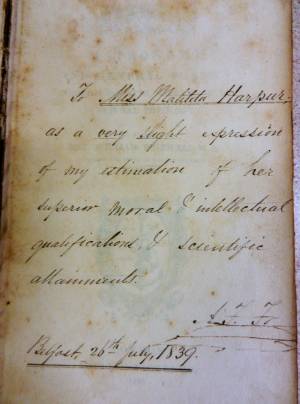 To Miss Matilda Harpur.
as a very slight expression
of my estimation of her
superior moral & intellectual
qualifications, & scientific
attainments.
Belfast, 26th July, 1839.